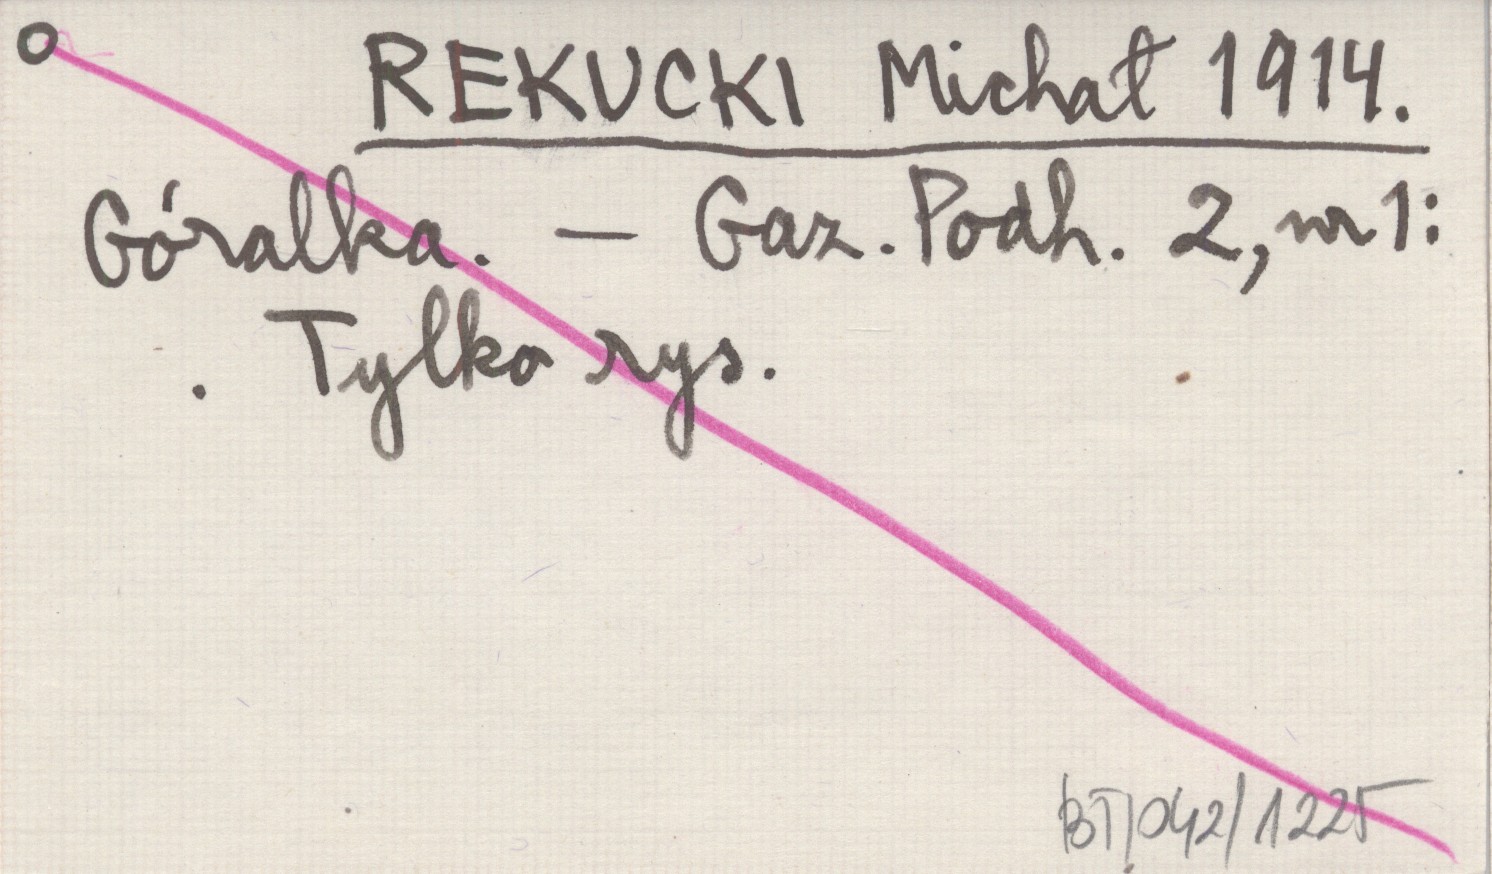 O REKUCKI Michał 1914.
Góralka. — Gaz. Podh. 2, nr 1:
. Tylko rys.
BT/042/1225